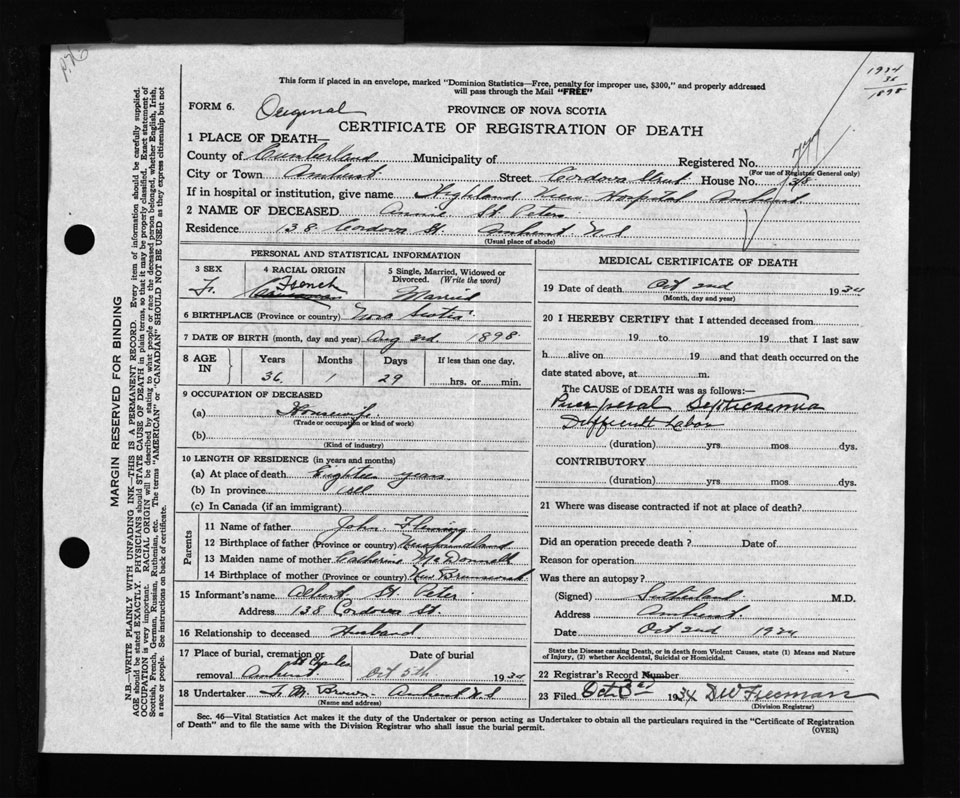 1934
36
1898
This form if placed in an envelope, marked "Dominion Statistics—Free, penalty for improper use, $300," and properly addressed
will pass through the Mail "FREE"
FORM 6. Original PROVINCE OF NOVA SCOTIA
CERTIFICATE OF REGISTRATION OF DEATH
1 PLACE OF DEATH—
County of Cumberland Municipality of Registered No.
(For use of Registrar General only)
City or Town Amherst Street Cordova Street House No. 138
If in hospital or institution, give name Highland View Hospital Amherst
2 NAME OF DECEASED Annie St. Peter
Residence 138 Cordova St. Amherst N.S
(Usual place of abode)
PERSONAL AND STATISTICAL INFORMATION
3 SEX 4 RACIAL ORIGIN 5 Single, Married, Widowed or Divorced. (Write the word)
F. French Married
6 BIRTHPLACE (Province or country) Nova Scotia
7 DATE OF BIRTH (month, day and year) Aug 3rd. 1898
8 AGE IN Years Months Days If less than one day,
36 1 29 hrs. or min.
9 OCCUPATION OF DECEASED
(a) Housewife
(Trade or occupation or kind of work)
(b)
(Kind of industry)
10 LENGTH OF RESIDENCE (in years and months)
(a) At place of death Eighteen years
(b) In province all
(c) In Canada (if an immigrant)
Parents
11 Name of father John Fleming
12 Birthplace of father (Province or country) Newfoundland
13 Maiden name of mother Catherine McDonnell
14 Birthplace of mother (Province or country) New Brunswick
15 Informant's name Albert St. Peter
Address 138 Cordova St.
16 Relationship to deceased Husband
17 Place of burial, cremation or removal Date of burial
Amherst Oct 5th 1934
18 Undertaker F. M. Brown Amherst N.S
(Name and address)
MEDICAL CERTIFICATE OF DEATH
19 Date of death Oct 2nd 1934
(Month, day and year)
20 I HEREBY CERTIFY that I attended deceased from
19 to 19 that I last saw
h alive on 19 and that death occurred on the
date stated above, at m.
The CAUSE of DEATH was as follows:—
Puerperal Septicaemia
Difficult Labor
(duration) yrs. mos. dys.
CONTRIBUTORY
(duration) yrs. mos. dys.
21 Where was disease contracted if not at place of death?
Did an operation precede death? Date of
Reason for operation
Was there an autopsy?
(Signed) Sutherland M.D.
Address Amherst
Date Oct 2nd 1934
State the Disease causing Death, or in death from Violent Causes, state (1) Means and Nature
of Injury, (2) whether Accidental, Suicidal or Homicidal.
22 Registrar's Record Number
23 Filed Oct 3rd 1934 DW Freeman
(Division Registrar)
Sec. 46—Vital Statistics Act makes it the duty of the Undertaker or person acting as Undertaker to obtain all the particulars required in the "Certificate of Registration
of Death" and to file the same with the Division Registrar who shall issue the burial permit.
(OVER)
MARGIN RESERVED FOR BINDING
N.B.—WRITE PLAINLY WITH UNFADING INK—THIS IS A PERMANENT RECORD. Every item of information should be carefully supplied.
AGE should be stated EXACTLY. PHYSICIANS should STATE CAUSE OF DEATH in plain terms, so that it may be properly classified. Exact statement of
OCCUPATION is very important. RACIAL ORIGIN will be described by stating to what people or race the deceased person belonged, whether English, Irish,
Scottish, French, German, Russian, Ruthenian, etc. The terms "AMERICAN" or "CANADIAN" SHOULD NOT BE USED as they express citizenship but not
a race or people. See instructions on back of certificate.